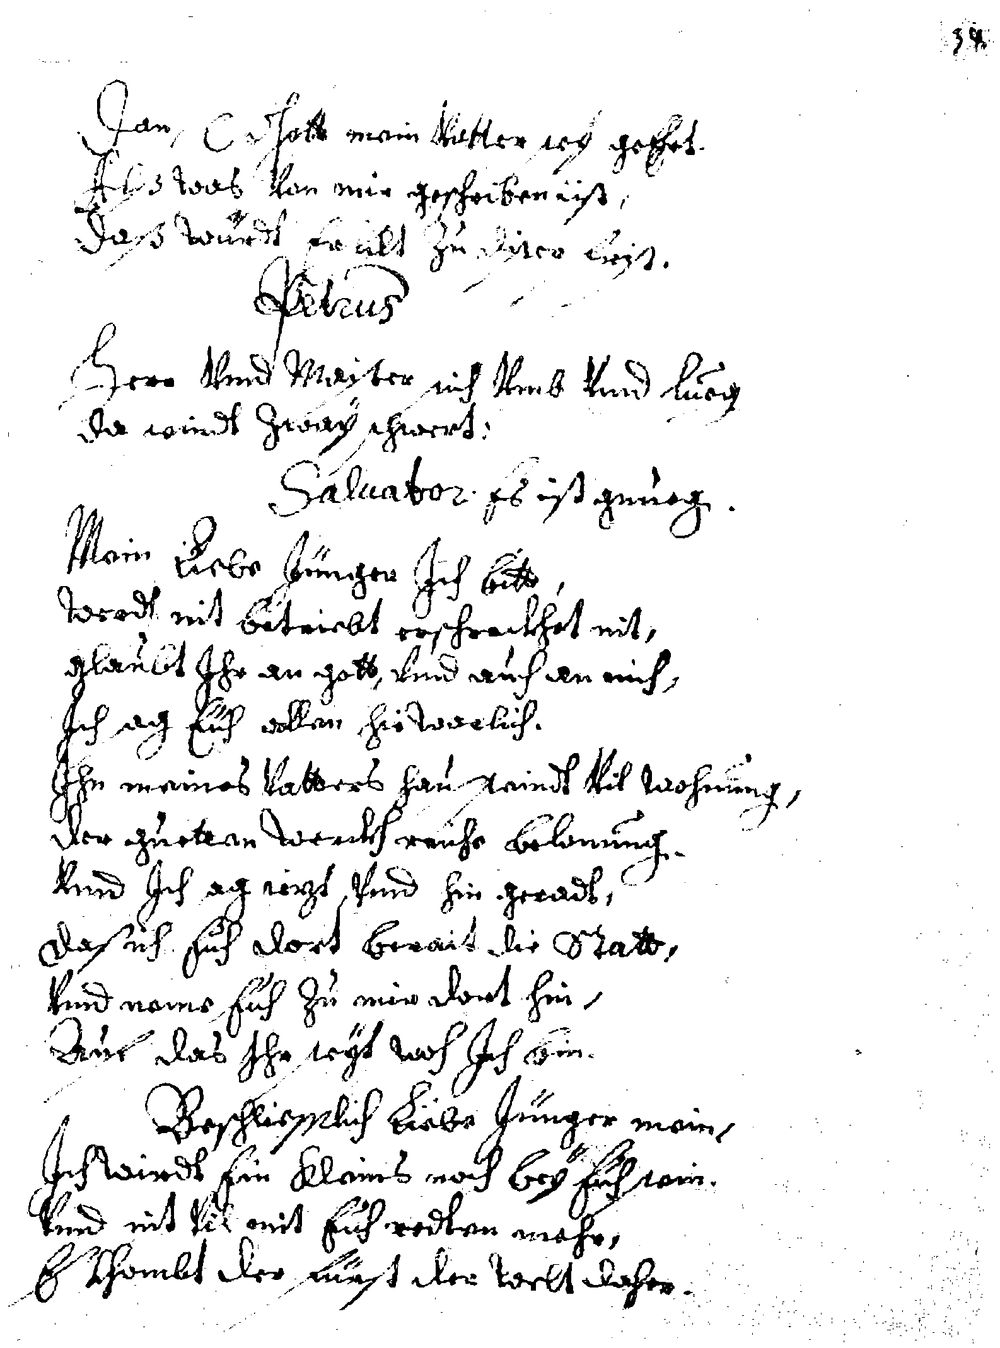 34
Dan, O Gott mein Vatter sey geehrt.
Alß was von mir geschriben ist,
daß würdt erfült Zu diser frist.
Petrus
Herr Vnd Maister sich Vmb Vnd lueg
da sindt Zway schwert:
Saluator. Es ist genueg.
Mein Liebe Jünger Ich bitt,
werdt nit betriebt erschreckhet nit,
glaubt Ihr an gott, Vnd auch an mich,
Ich sag Euch allen hie warlich.
Ihn meines Vatters hauß seindt Vil wohnung,
der guetten werckh reiche belonung.
Vnd Ich sag iezt Vnd hin geradt,
das ich Euch dort berait die Statt,
Vnd neme Euch Zu mir dort hin,
Auf das Ihr seyt woh Ich bin.
Beschliesslich Liebe Jünger mein,
Ich wirdt Ein kleins noch bey Euch sein.
Vnd nit Vil mit Euch redten mehr,
Es khombt der fürst der welt daher.